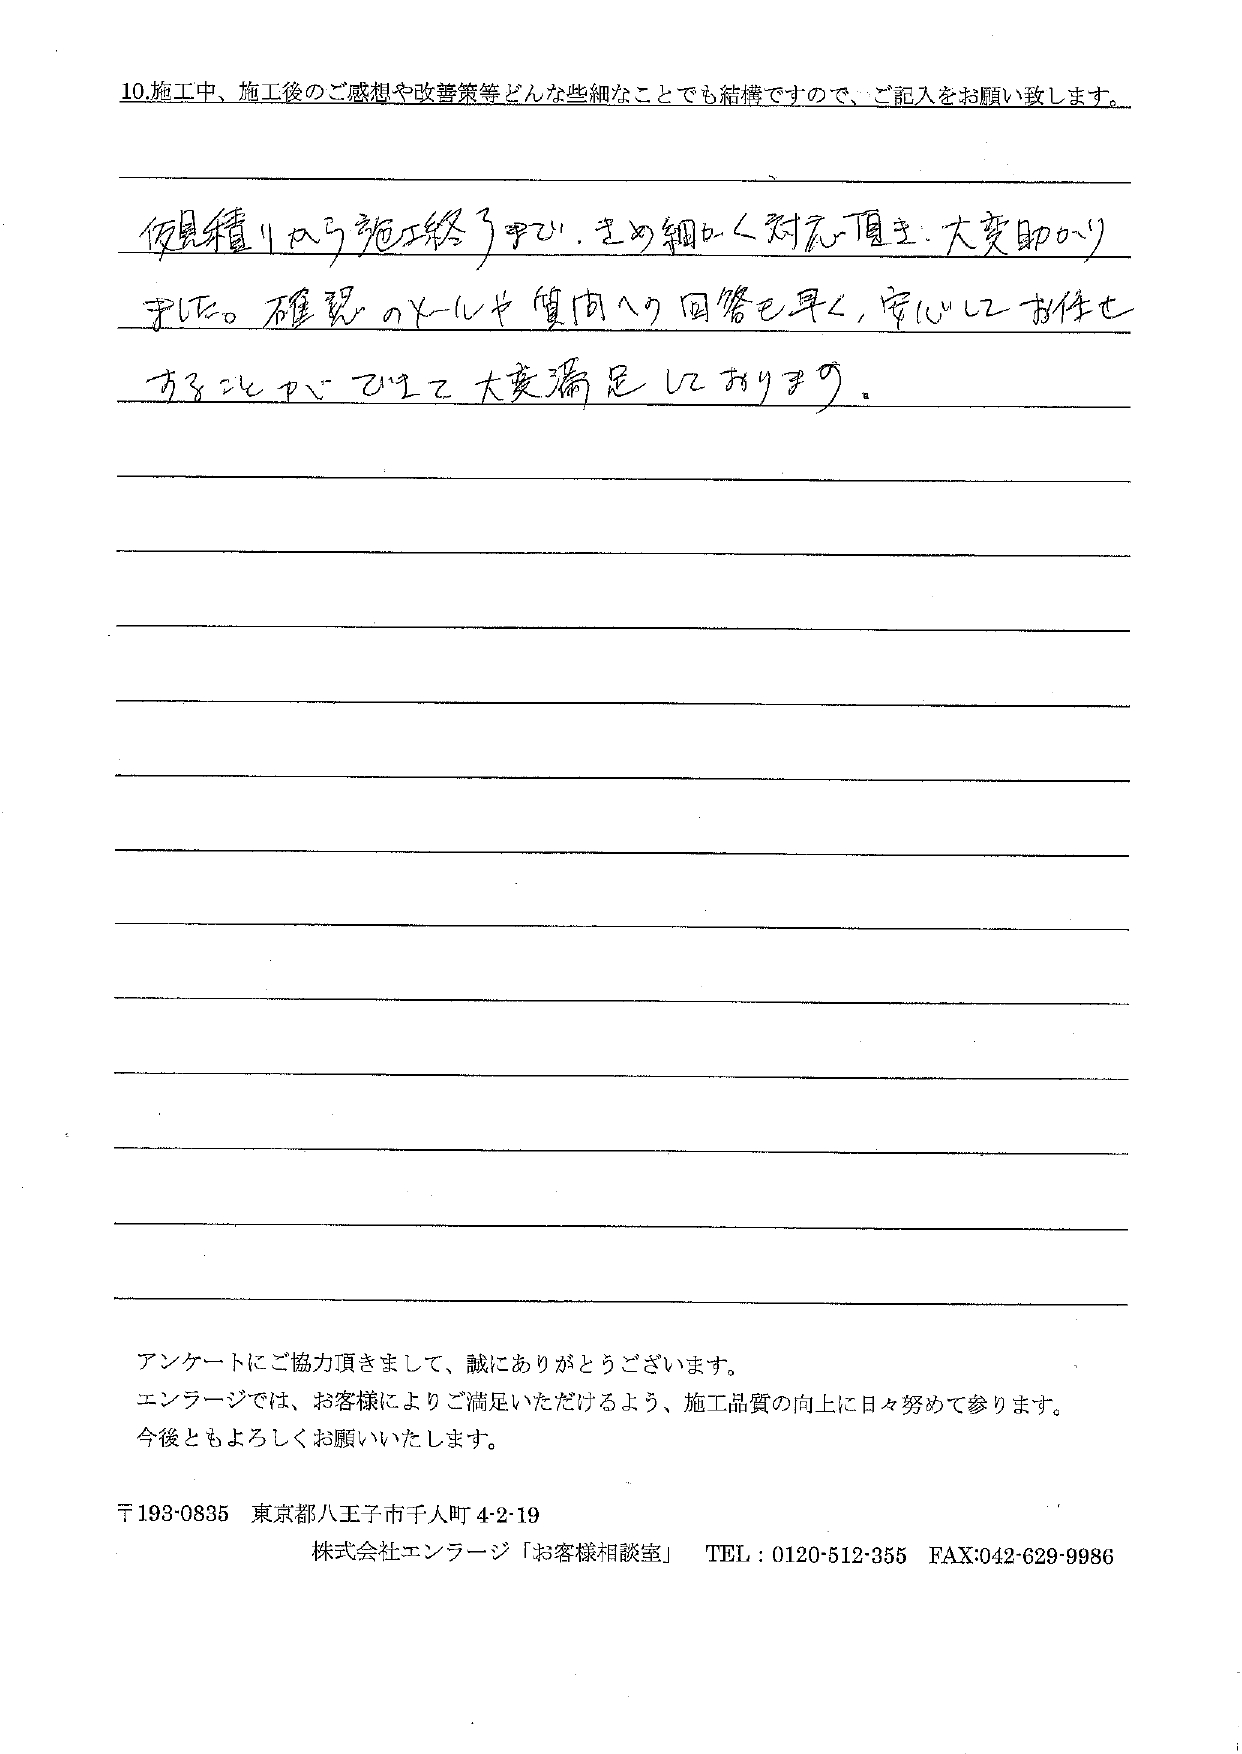 10.施工中、施工後のご感想や改善策等どんな些細なことでも結構ですので、ご記入をお願い致します。
仮見積りから施工終了まで、きめ細かく対応頂き、大変助かり
ました。確認のメールや質問への回答も早く、安心してお任せ
することができて大変満足しております。
アンケートにご協力頂きまして、誠にありがとうございます。
エンラージでは、お客様によりご満足いただけるよう、施工品質の向上に日々努めて参ります。
今後ともよろしくお願いいたします。
〒193-0835　東京都八王子市千人町 4-2-19
株式会社エンラージ「お客様相談室」　TEL：0120-512-355　FAX:042-629-9986